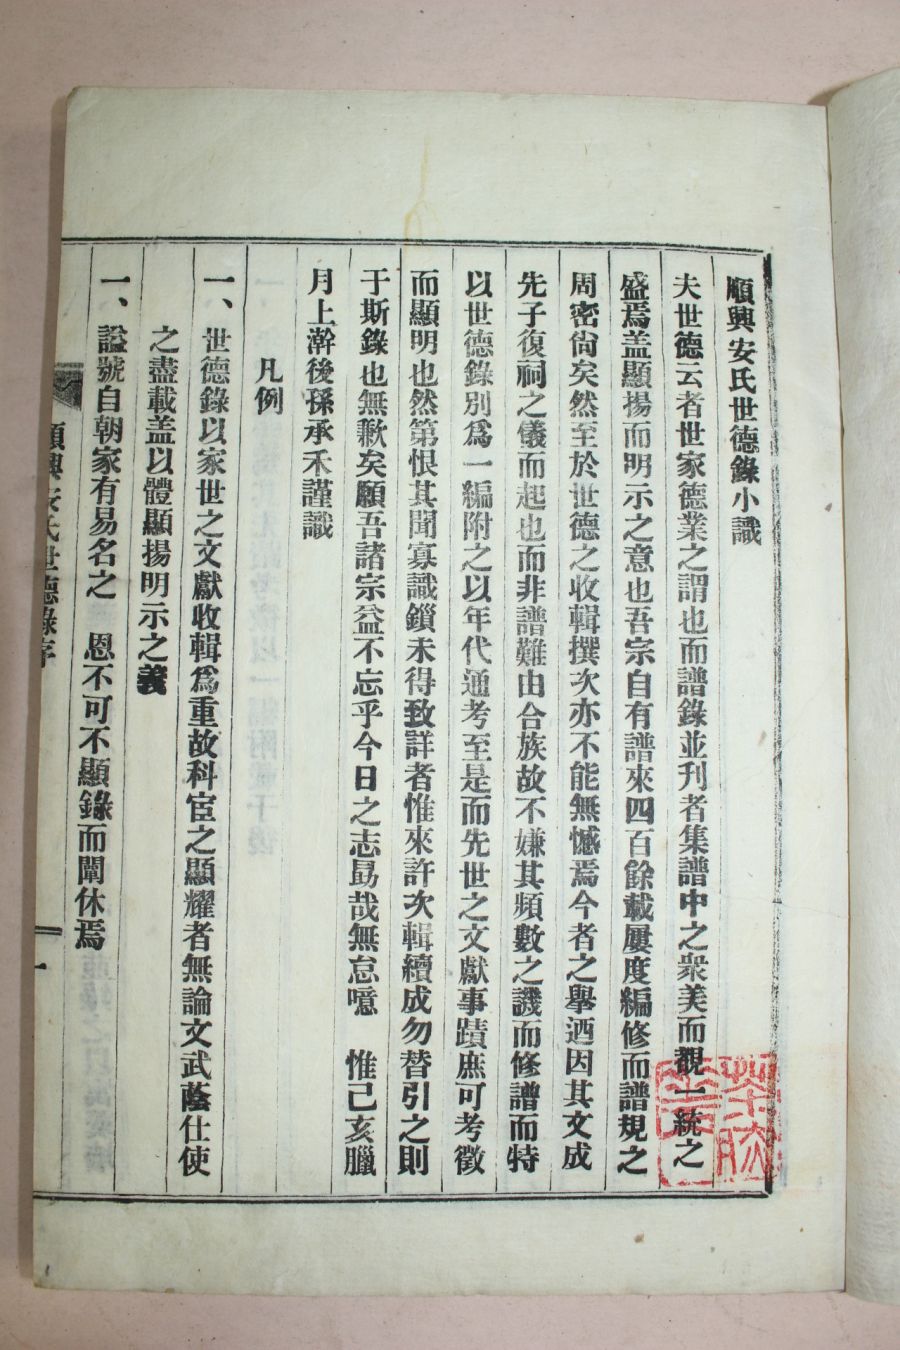 順興安氏世德錄小識
夫世德云者世家德業之謂也而譜錄並刋者集譜中之衆美而觀一統之
盛焉盖顯揚而明示之意也吾宗自有譜來四百餘載屢度編修而譜規之
周密尙矣然至於世德之收輯撰次亦不能無憾焉今者之擧迺因其文成
先子復祠之儀而起也而非譜難由合族故不嫌其頻數之譏而修譜而特
以世德錄別爲一編附之以年代通考至是而先世之文獻事蹟庶可考徵
而顯明也然第恨其聞寡識鎖未得致詳者惟來許次輯續成勿替引之則
于斯錄也無歉矣願吾諸宗益不忘乎今日之志勗哉無怠噫 惟己亥臘
月上澣後孫承禾謹識
凡例
一、世德錄以家世之文獻收輯爲重故科宦之顯耀者無論文武蔭仕使
之盡載盖以體顯揚明示之義
一、謚號自朝家有易名之 恩不可不顯錄而闡休焉
順興安氏世德錄序
一